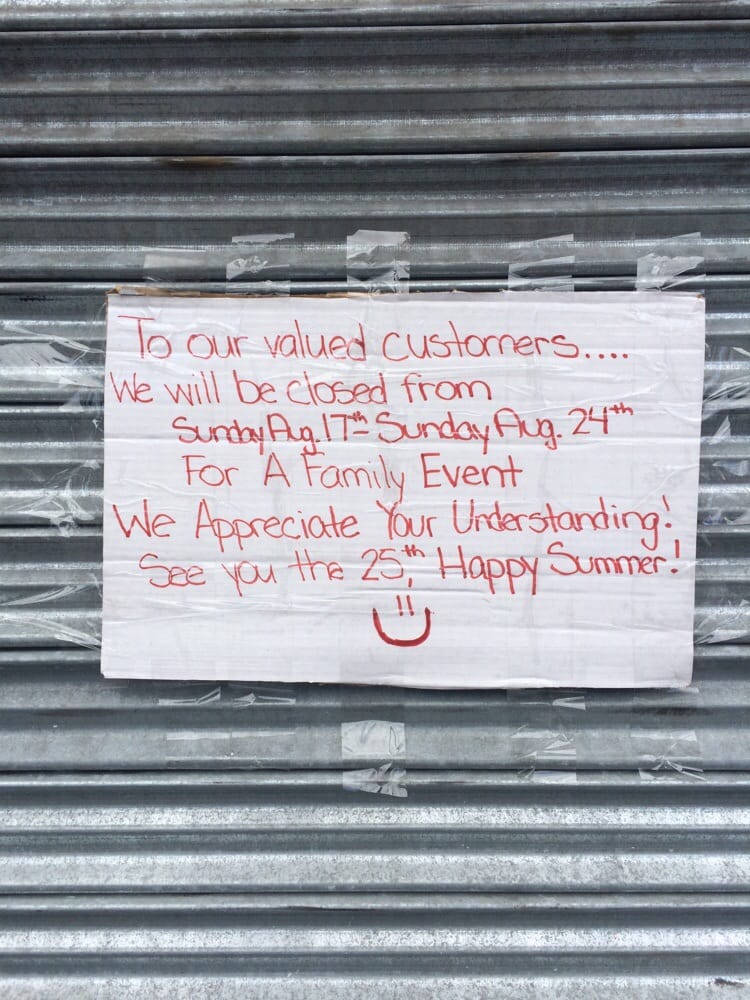 To our valued customers....
We will be closed from
Sunday Aug. 17th - Sunday Aug. 24th
For A Family Event
We Appreciate Your Understanding!
See you the 25th, Happy Summer!